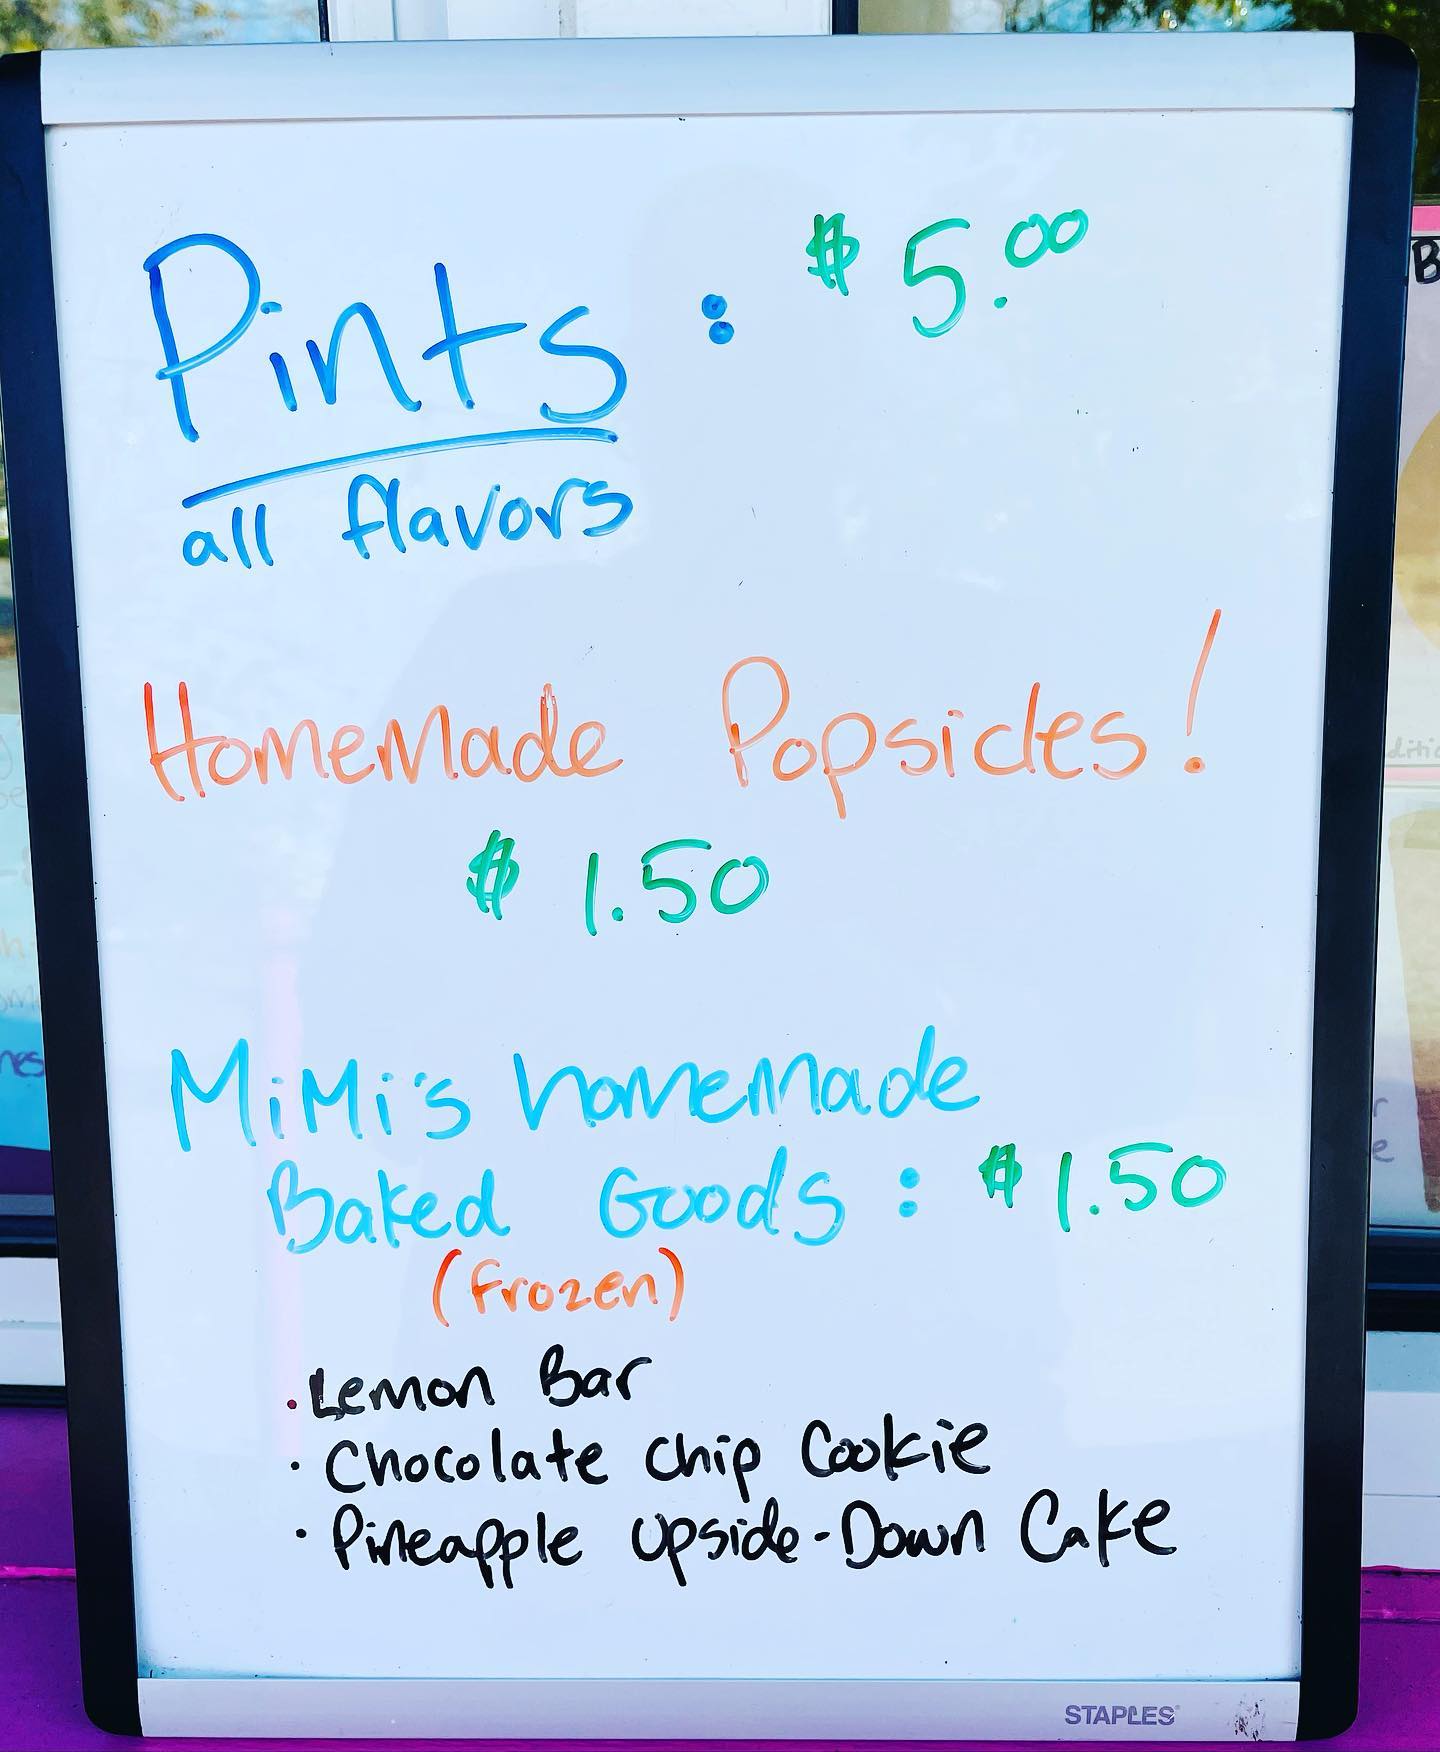 Pints : $5.00
all flavors
Homemade Popsicles!
$1.50
MiMi's homemade
Baked Goods : $1.50
(frozen)
· Lemon Bar
· Chocolate Chip Cookie
· Pineapple Upside-Down Cake
STAPLES